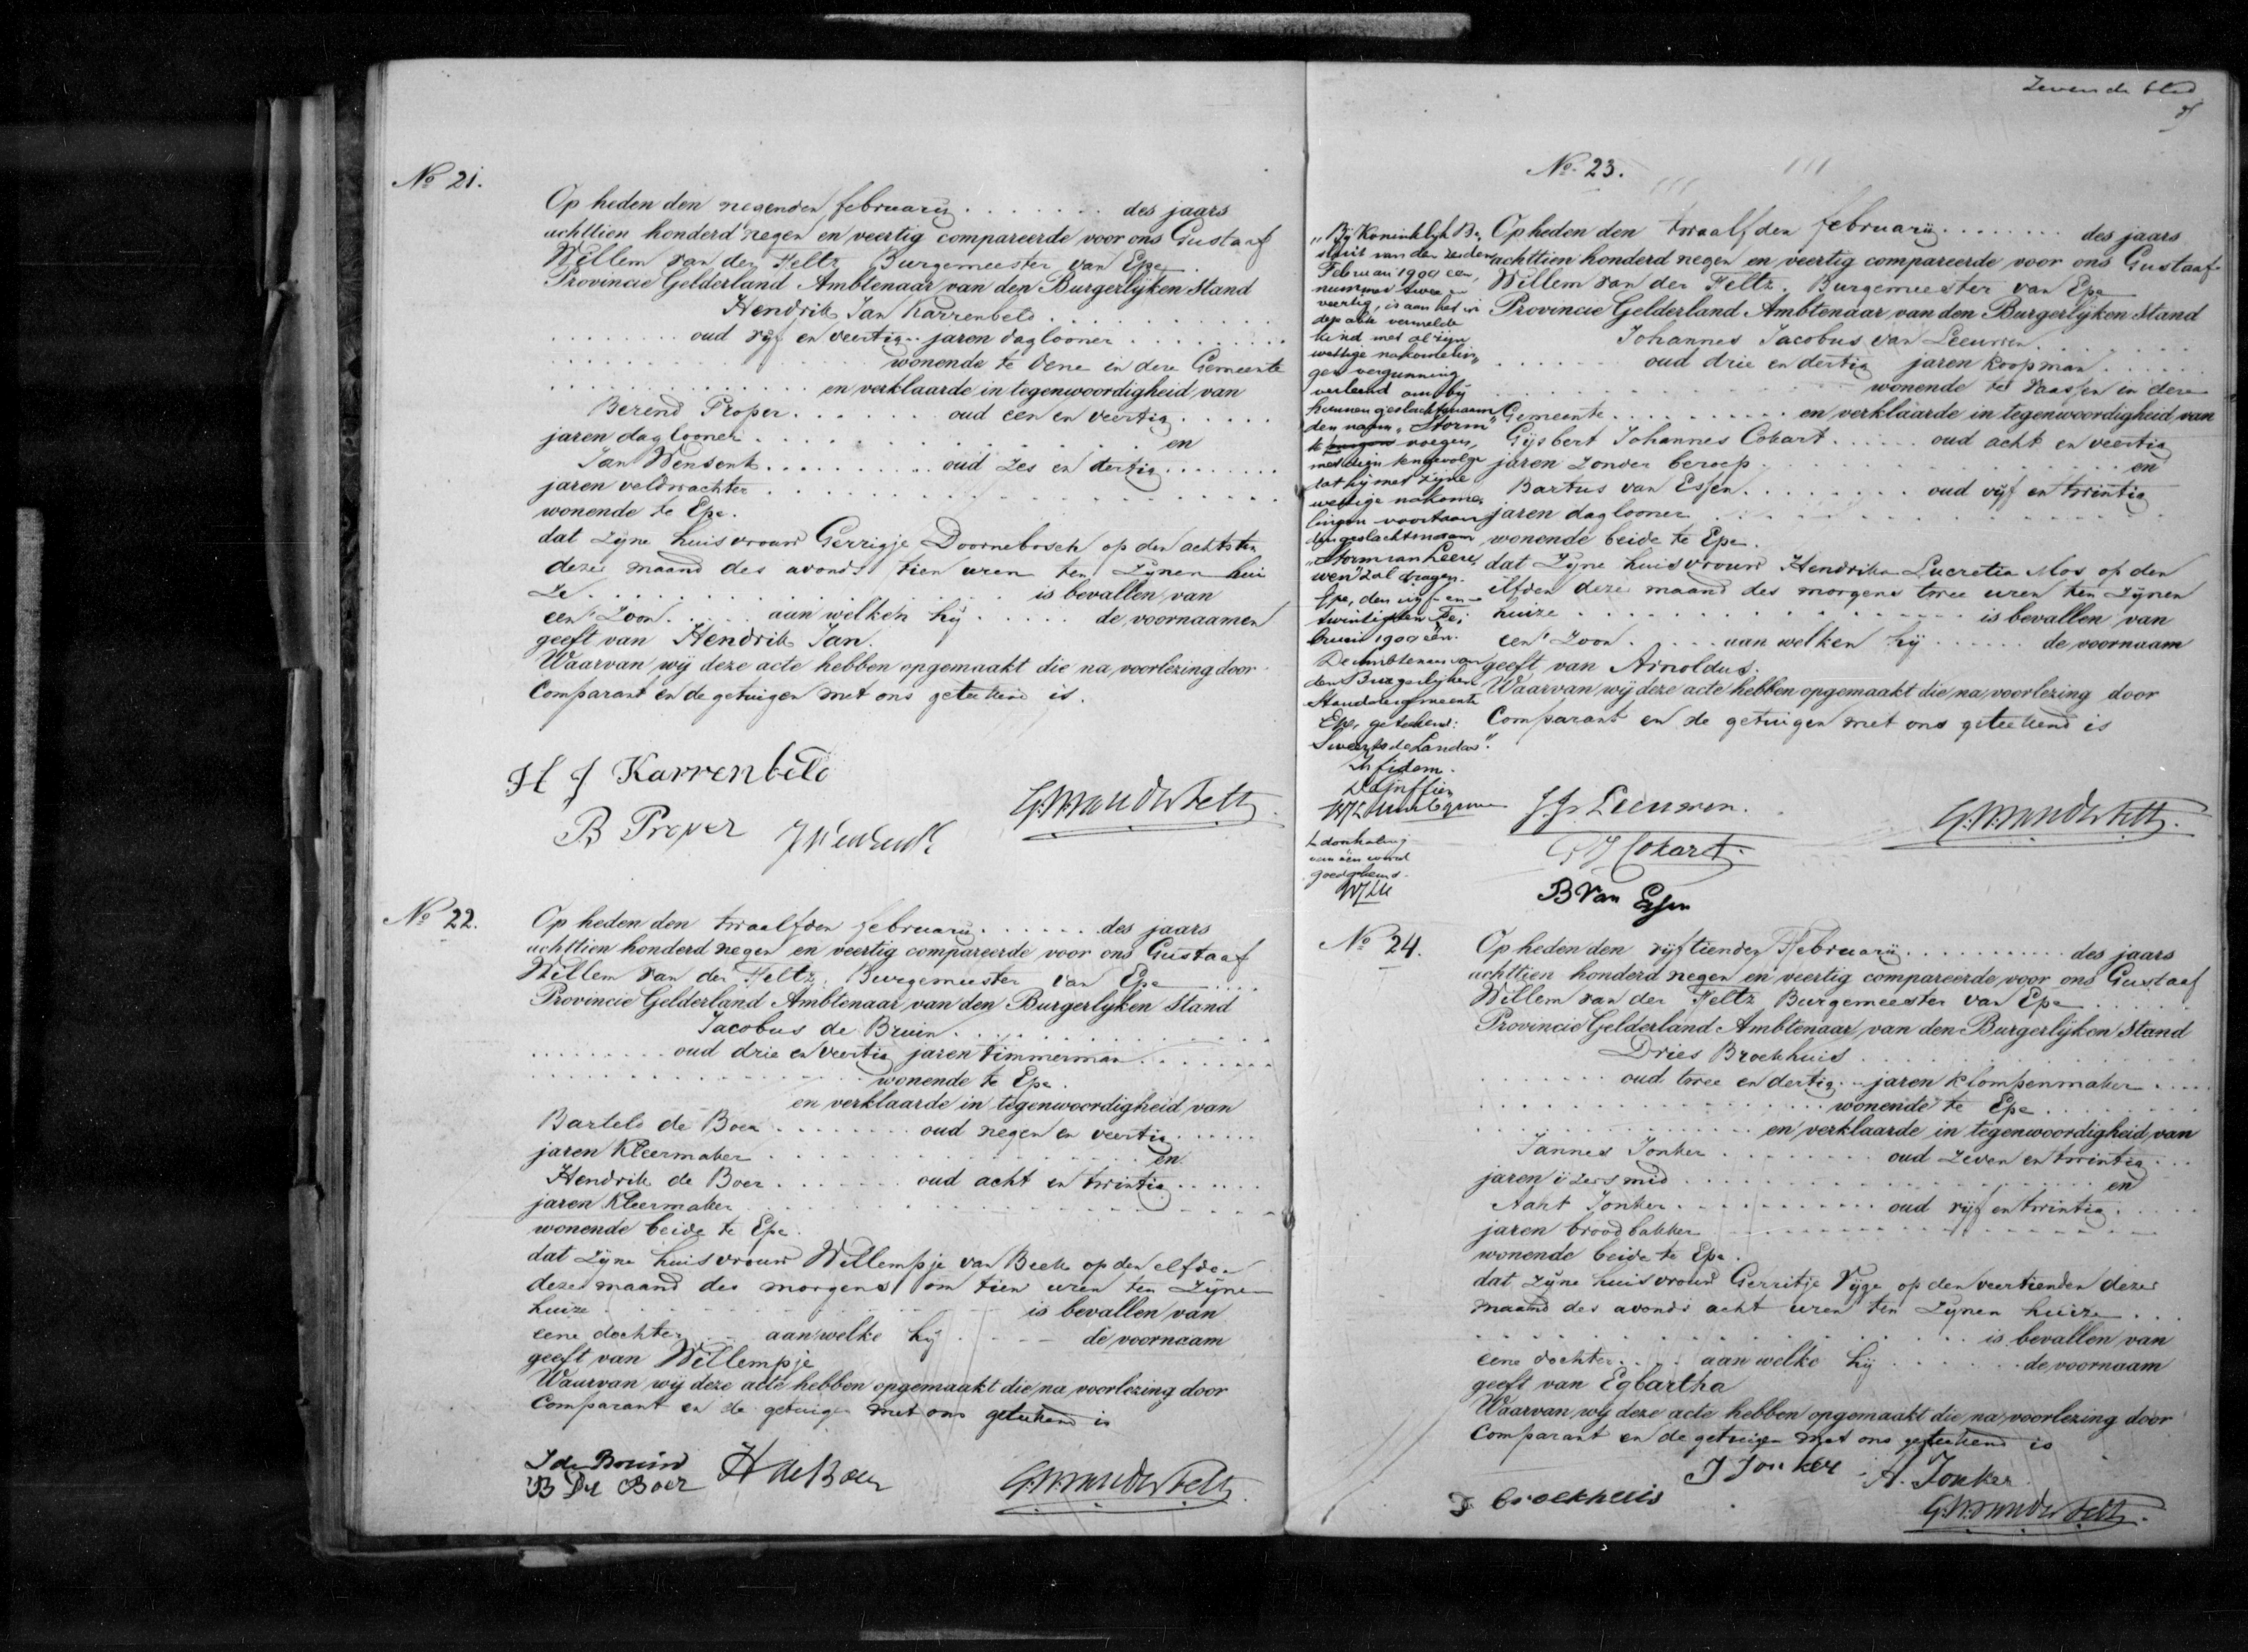 No 21.
Op heden den negenden februarij des jaars
achttien honderd negen en veertig compareerde voor ons Gustaaf
Willem van der Feltz Burgemeester van Epe
Provincie Gelderland Ambtenaar van den Burgerlyken Stand
Hendrik Jan Karrenbeld
oud vyf en veertig jaren daglooner
wonende te Oene in deze Gemeente
en verklaarde in tegenwoordigheid van
Berend Proper oud een en veertig
jaren daglooner en
Jan Wensenk oud zes en dertig
jaren veldwachter
wonende te Epe.
dat zyne huisvrouw Gerrigje Doornebosch op den achtsten
dezer maand des avonds tien uren ten zynen hui
ze is bevallen van
een zoon aan welken hy de voornaamen
geeft van Hendrik Jan.
Waarvan wy deze acte hebben opgemaakt die na voorlezing door
Comparant en de getuigen met ons geteekend is.
H J Karrenbeld
B Proper JWensenk
G.W.vanderFeltz
No 22.
Op heden den twaalfden februarij des jaars
achttien honderd negen en veertig compareerde voor ons Gustaaf
Willem van der Feltz, Burgemeester van Epe
Provincie Gelderland Ambtenaar van den Burgerlyken Stand
Jacobus de Bruin
oud drie en veertig jaren timmerman
wonende te Epe.
en verklaarde in tegenwoordigheid van
Bartels de Boer oud negen en veertig
jaren Kleermaker en
Hendrik de Boer oud acht en twintig
jaren Kleermaker
wonende beide te Epe.
dat zyne huisvrouw Willempje van Beek op den elfden
dezer maand des morgens om tien uren ten zynen
huize is bevallen van
eene dochter aan welke hy de voornaam
geeft van Willempje
Waarvan wy deze acte hebben opgemaakt die na voorlezing door
Comparant en de getuigen met ons geteekend is
J de Bruin
B De Boer H de Boer
G.W.vanderFeltz
Zevende blad
No 23.
"By Koninklyk Be,
sluit van den zesden
Februari 1900 een,
nummer twee en
veertig, is aan het in
deze akte vermelde
kind met al zyn
wettige nakomelin,
gen vergunning
verleend om by
hunnen geslachtsnaam
den naam "Storm"
te voegen,
met dien tengevolge
dat hy met zyne
wettige nakome,
lingen voortaan
den geslachtsnaam
"Storm van Leeu,
wen" zal dragen.
Epe, den vyf-en-
twintigsten Fe,
bruari 1900 één.
De Ambtenaar van
den Burgerlyken
Stand der gemeente
Epe, geteekend:
Sweerts de Landas".
In fidem.
De Griffier
Op heden den twaalfden februarij des jaars
achttien honderd negen en veertig compareerde voor ons Gustaaf
Willem van der Feltz. Burgemeester van Epe
Provincie Gelderland Ambtenaar van den Burgerlyken Stand
Johannes Jacobus van Leeuwen
oud drie en dertig jaren koopman
wonende te Vaassen in deze
Gemeente en verklaarde in tegenwoordigheid van
Gysbert Johannes Cokart oud acht en veertig
jaren zonder beroep en
Bartus van Essen oud vyf en twintig
jaren daglooner
wonende beide te Epe.
dat zyne huisvrouw Hendrika Lucretia Mos op den
elfden dezer maand des morgens twee uren ten zynen
huize is bevallen van
een zoon aan welken hy de voornaam
geeft van Arnoldus.
Waarvan wy deze acte hebben opgemaakt die na voorlezing door
Comparant en de getuigen met ons geteekend is
J.J.v Leeuwen.
G J Cokart.
B Van Essen
G.W.vanderFeltz.
de doorhaling
van één woord
goedgekeurd.
No 24.
Op heden den vyftienden Februarij des jaars
achttien honderd negen en veertig compareerde voor ons Gustaaf
Willem van der Feltz Burgemeester van Epe
Provincie Gelderland Ambtenaar van den Burgerlyken Stand
Dries Broekhuis
oud twee en dertig jaren klompenmaker
wonende te Epe
en verklaarde in tegenwoordigheid van
Jannes Jonker oud zeven en twintig
jaren yzersmid en
Aart Jonker oud vyf en twintig
jaren broodbakker
wonende beide te Epe.
dat zyne huisvrouw Gerritje Vyge op den veertienden dezer
maand des avonds acht uren ten zynen huize
is bevallen van
eene dochter aan welke hy de voornaam
geeft van Egbartha
Waarvan wy deze acte hebben opgemaakt die na voorlezing door
Comparant en de getuigen met ons geteekend is
D broekhuis J Jonker A. Jonker
G.W.vanderFeltz.